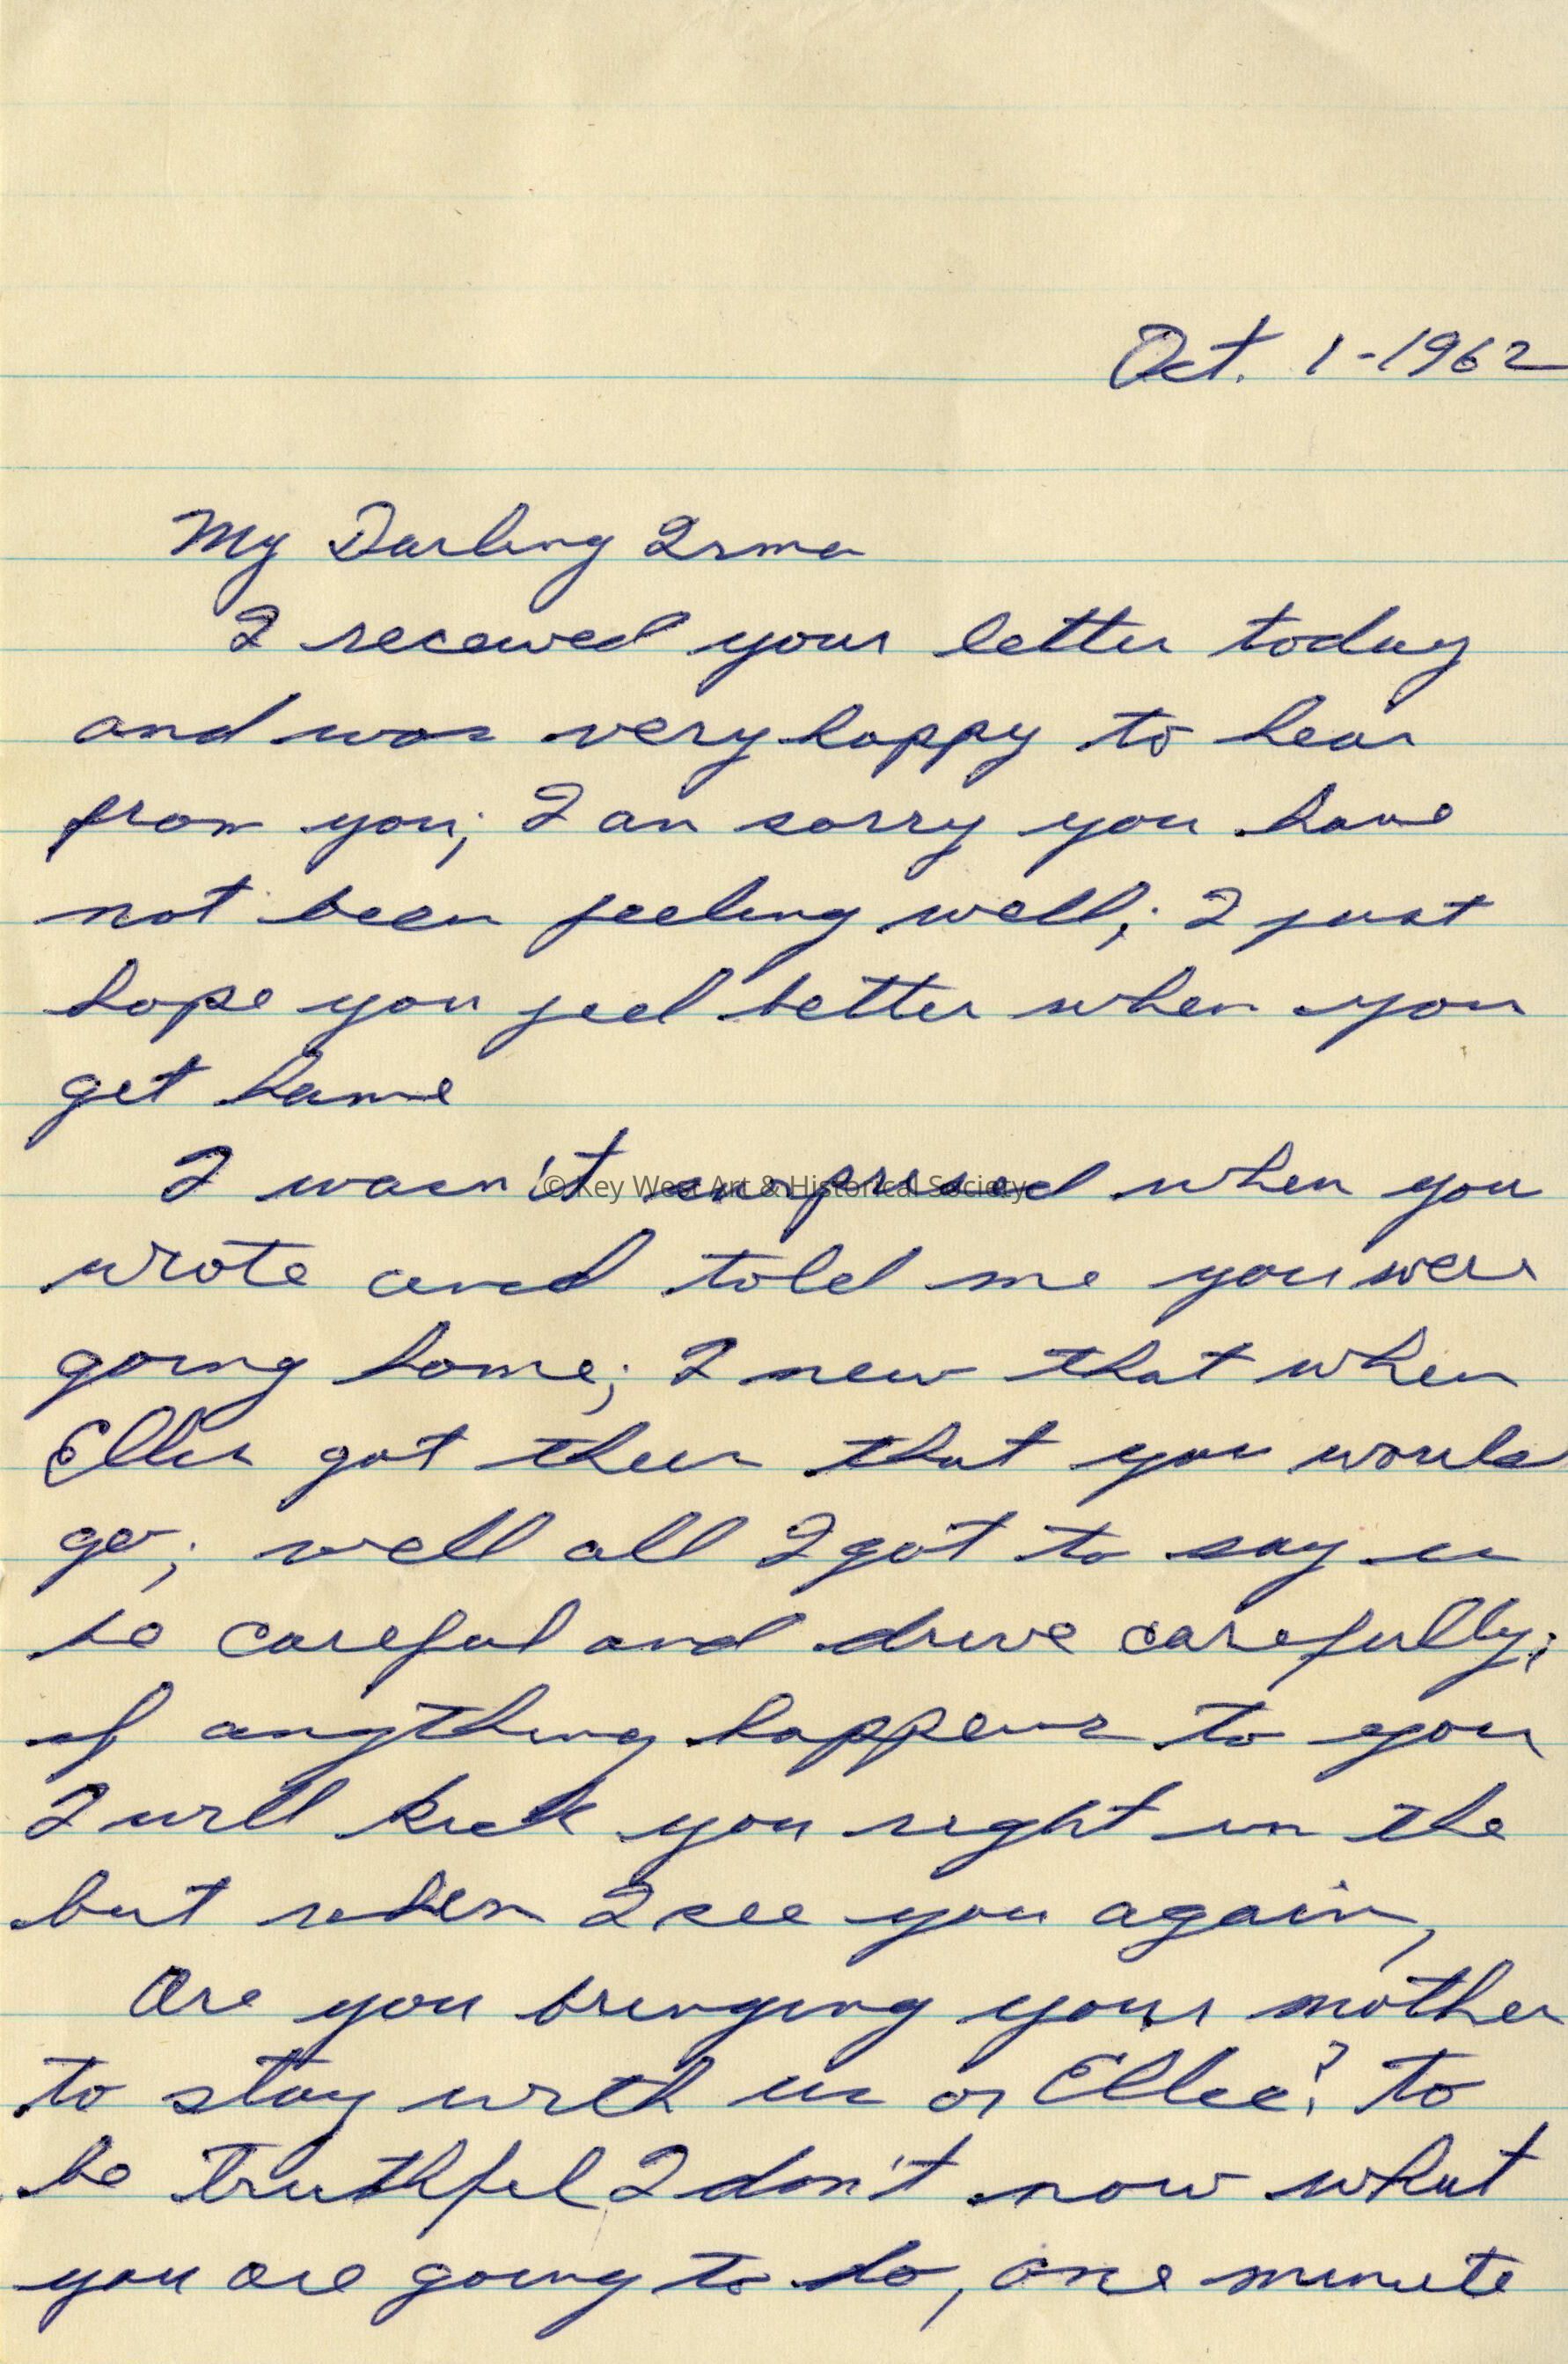 Oct. 1-1962
My Darling Irma
I received your letter today
and was very happy to hear
from you; I am sorry you have
not been feeling well; I just
hope you feel better when you
get home
I wasn't surprised when you
© Key West Art & Historical Society
wrote and told me you were
going home; I new that when
Ellis got there that you would
go; well all I got to say is
be careful and drive carefully;
if anything happens to you
I will kick you right in the
but when I see you again,
Are you bringing your mother
to stay with us or Ellis? to
be truthful I don't now what
you are going to do, one minute